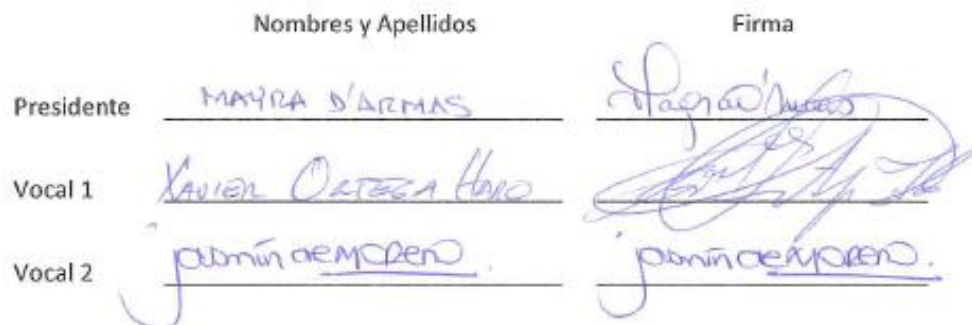 Nombres y Apellidos Firma
Presidente MAYRA D'ARMAS Mayra D'Armas
Vocal 1 XAVIER ORTEGA HARO
Vocal 2 jasmín de MORENO. jasmín de MORENO.